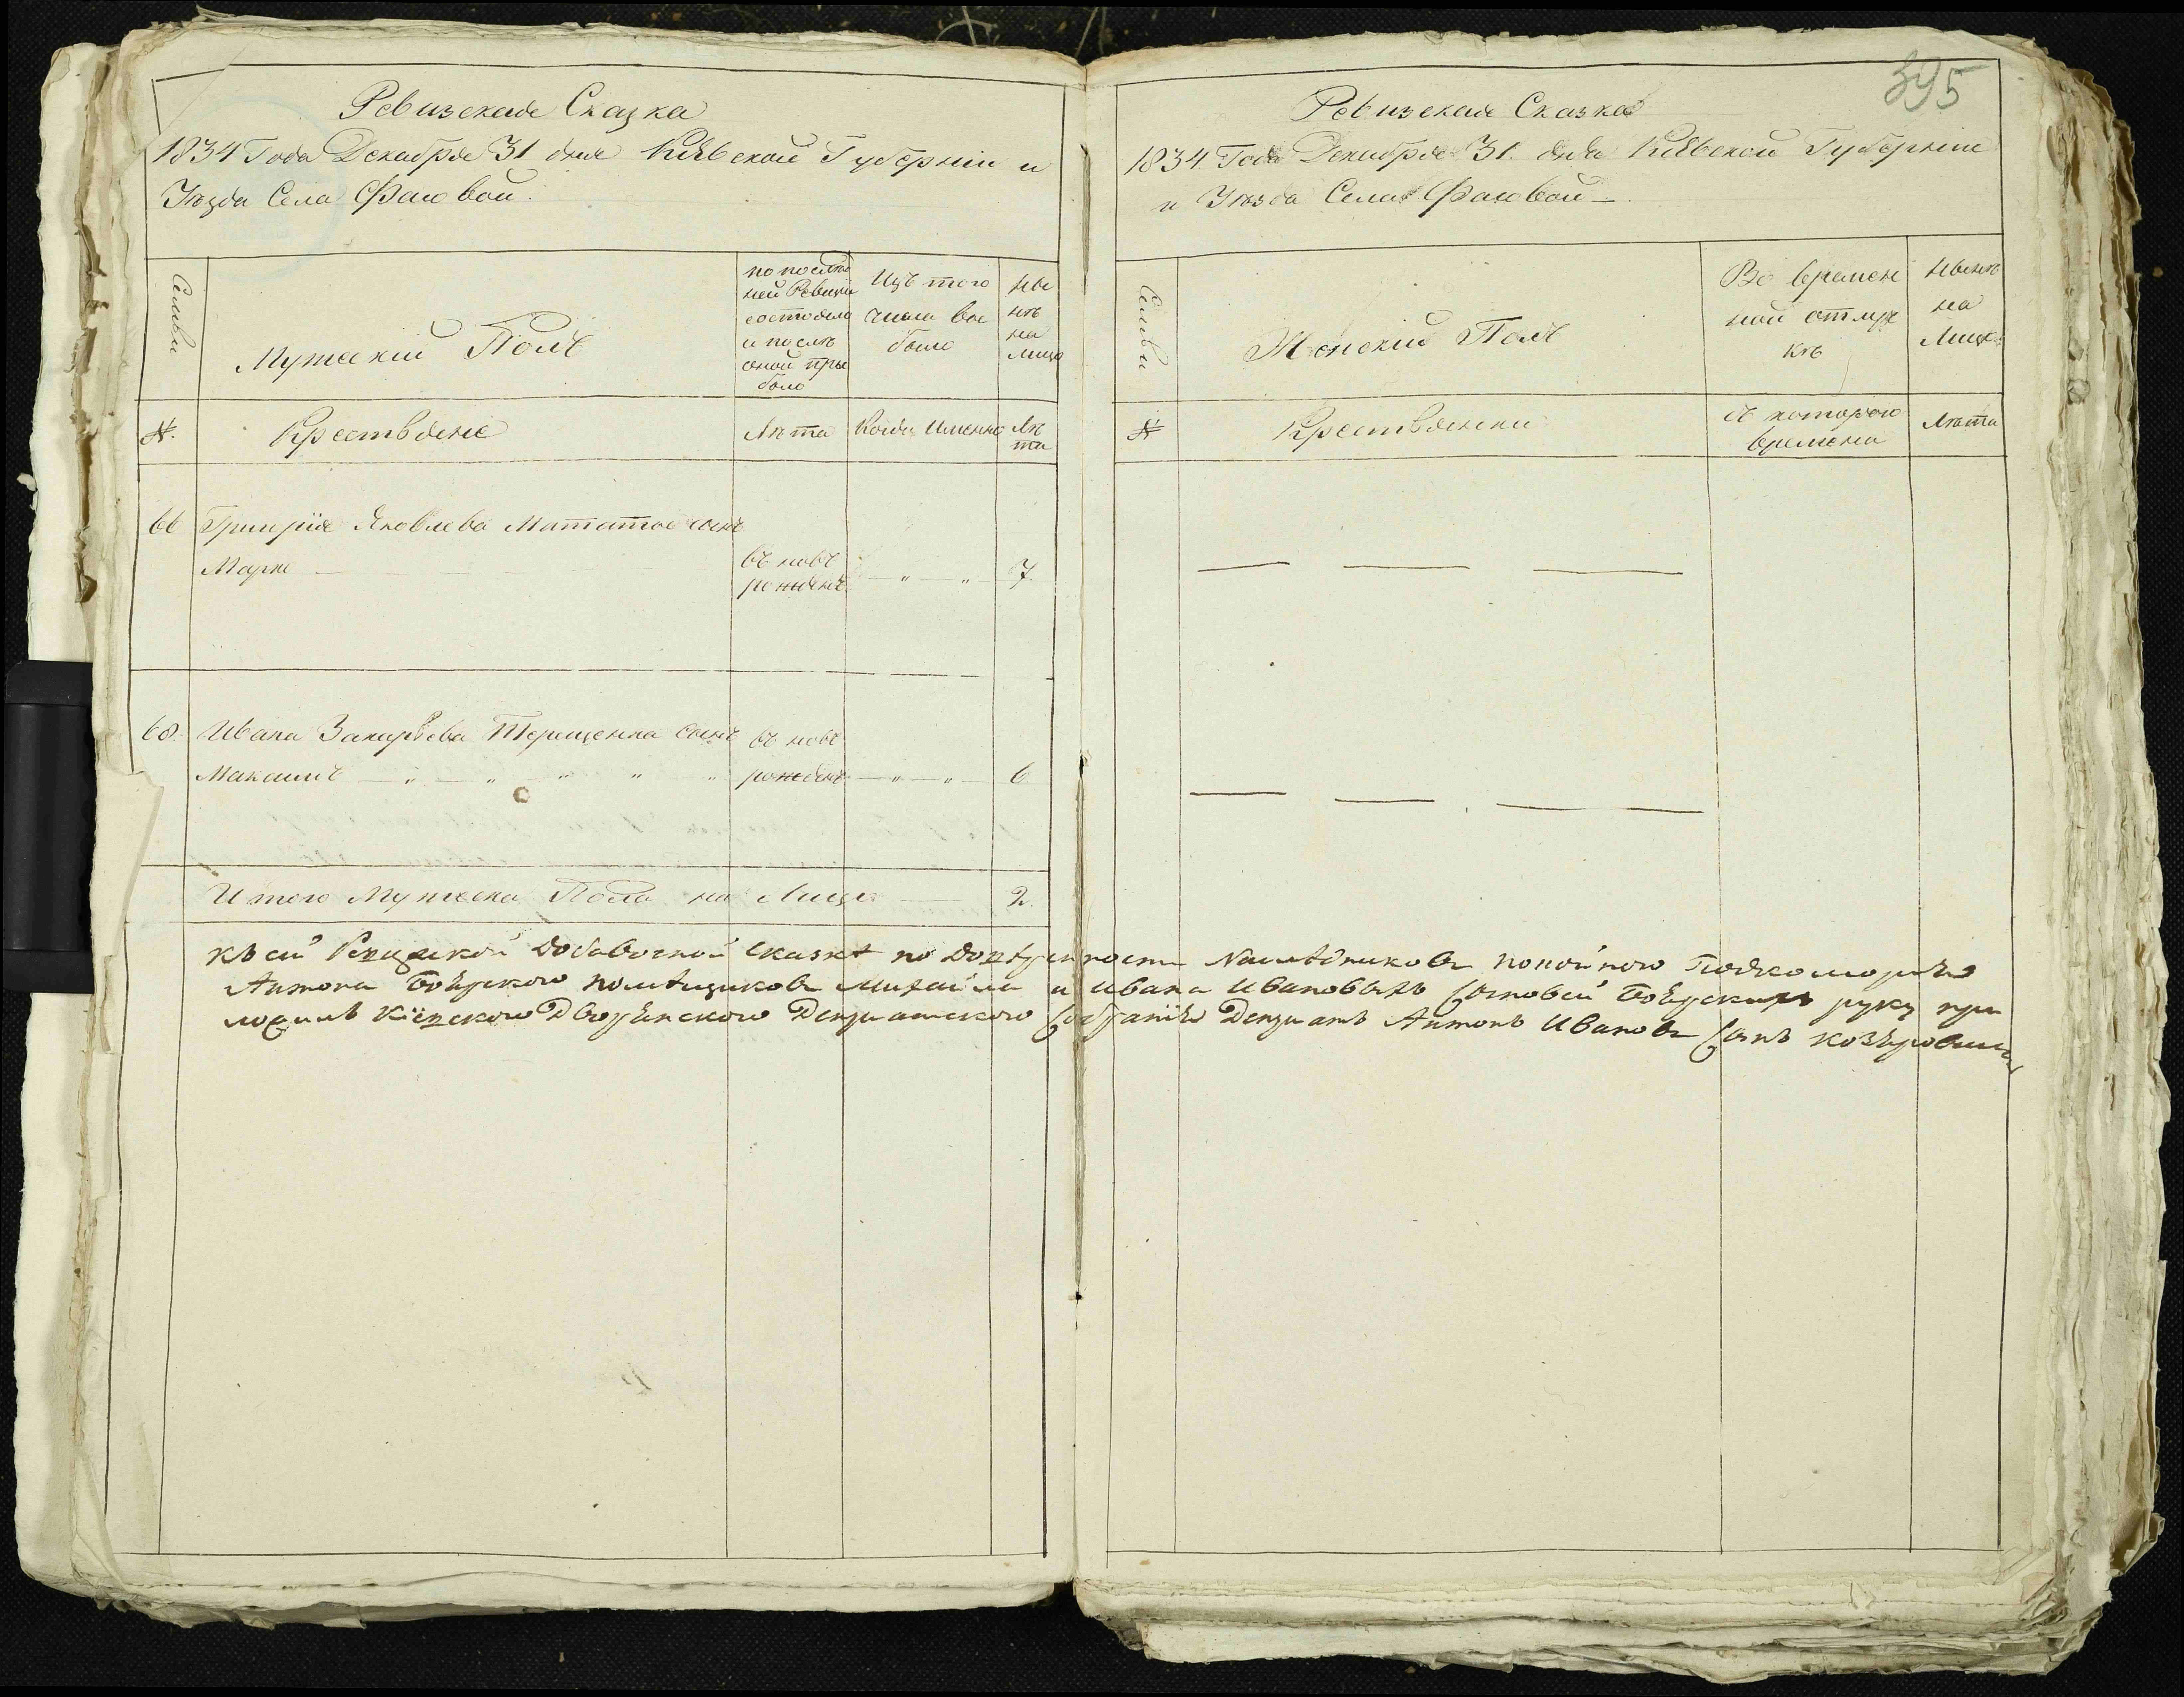 Ревизская Сказка
1834 Года Декабря 31 дня Кіевской Губерніи и
Уѣзда Села Фасовой.
Семьи
Мужескій Полъ
по послѣд
ней Ревизіи
состояло
и послѣ
оной при
было
Изъ того
числа вы
было
Ны
нѣ
на
лицо
№.
Крестьяне
Лѣта
Когда Именно
Лѣ
та
66
Григорія Яковлева сынъ
Марко
въ новѣ
рожденъ
7.
68.
Ивана Захарьева Терещенка сынъ
въ новѣ
Максимъ
рожденъ
6
Итого Мужеска Пола на Лицо
2.
395
Ревизская Сказка
1834 Года Декабря 31 дня Кіевской Губерніи
и Уѣзда Села Фасовой
Семьи
Женскій Полъ
Во времен
ной отлуч
кѣ
Нынѣ
на
Лицо
№
Крестьянки
съ которого
времени
Лѣта
къ сей Ревизской Добавочной сказкѣ по довѣренности Наслѣдниковъ покойного Подкоморія
Антона помѣщиковъ Михайла и Ивана Ивановыхъ Сыновей руку при
ложилъ Кіевского Дворянского Депутатского Собранія Депутатъ Антонъ Ивановъ Сынъ